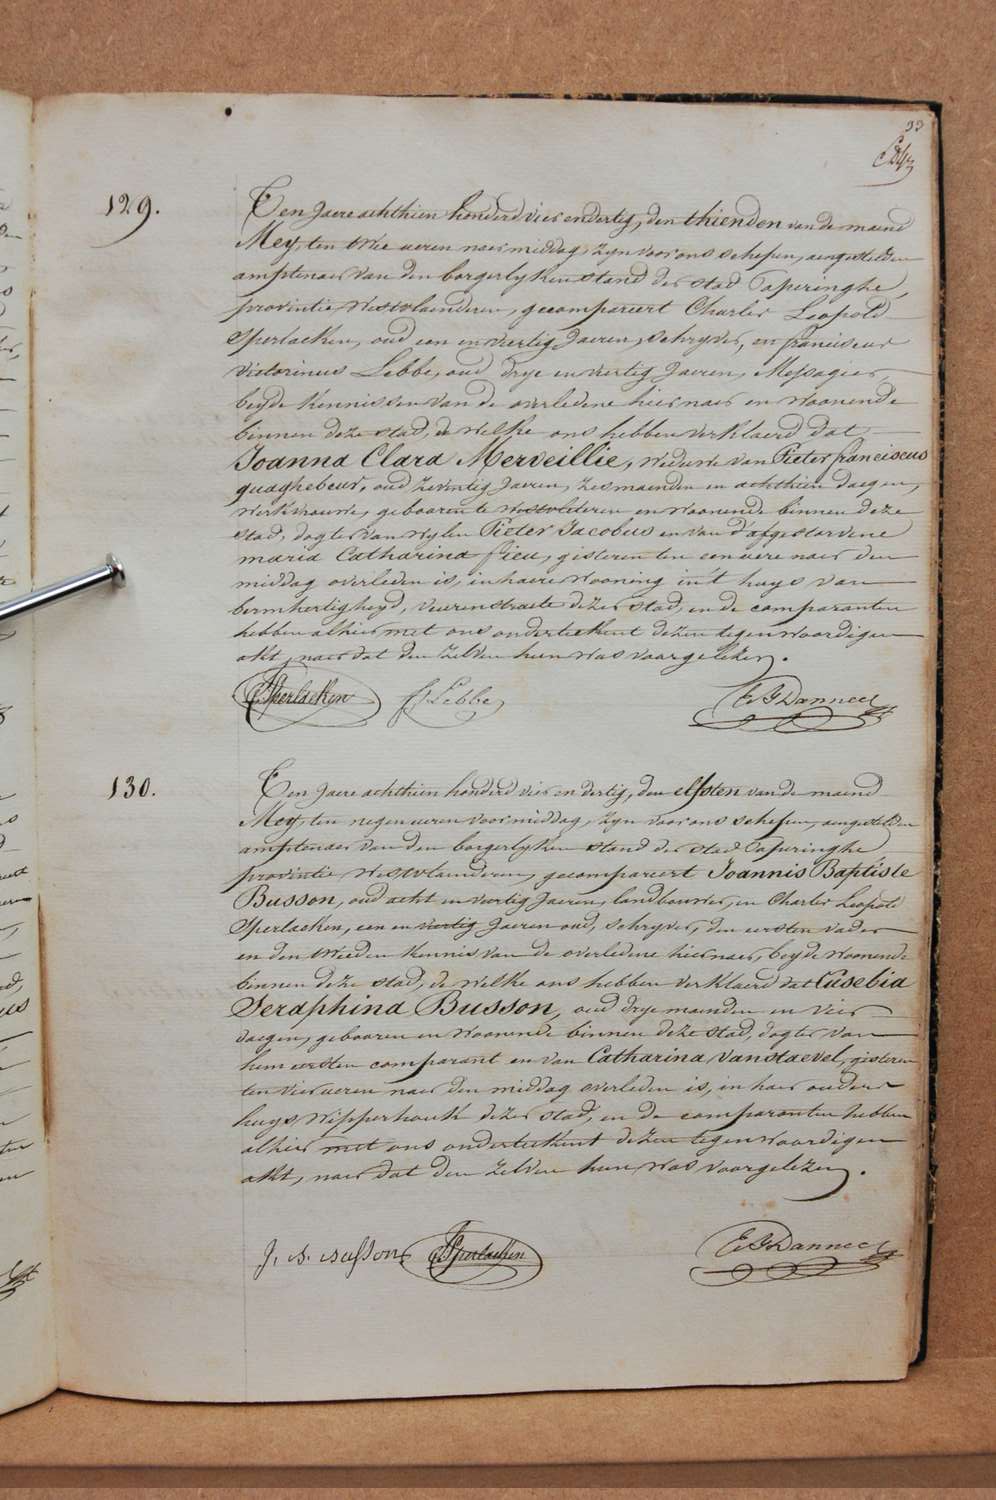 33
129.
Ten Jaere achthien honderd vier en dertig, den thienden van de maend
Mey, ten twee ueren naer middag, zyn voor ons schepen, aengestelden
amptenaer van den borgerlyken stand der stad Poperinghe,
provintie Westvlaenderen, gecompareert Charles Leopold
Sperlaeken, oud een en veertig Jaeren, schryver, en franciscus
Victorinus Lebbe, oud drye en veertig Jaeren, Messagier,
beyde kennissen van de overledene hier naer en woonende
binnen deze stad, de welke ons hebben verklaerd dat
Joanna Clara Merveillie, weduwe van Pieter franciscus
quaghebeur, oud zeventig Jaeren, zes maenden en achthien daegen,
werkvrouwe, gebooren te Westvleteren en woonende binnen deze
stad, dogter van wylen Pieter Jacobus en van d'afgestorvene
maria Catharina fieu, gisteren ten een uere naer den
middag overleden is, in haere wooning in't huys van
bermhertigheyd, veurenstraete dezer stad, en de comparanten
hebben alhier met ons onderteekent dezen tegenwoordigen
akt, naer dat den zelven hun was voorgelezen.
C L Sperlaeken f. v. Lebbe E G Danneel
130.
Ten Jaere achthien honderd vier en dertig, den elfsten van de maend
Mey, ten negen ueren voormiddag, zyn voor ons schepen, aengestelden
amptenaer van den borgerlyken stand der stad Poperinghe
provintie Westvlaenderen, gecompareert Joannis Baptiste
Busson, oud acht en veertig Jaeren, landbouwer, en Charles Leopold
Sperlaeken, een en veertig Jaeren oud, schryver, den eersten vader
en den tweeden kennis van de overledene hier naer, beyde woonende
binnen deze stad, de welke ons hebben verklaerd dat Eusebia
Seraphina Busson, oud drye maenden en vier
daegen, gebooren en woonende binnen deze stad, dogter van
hun eersten comparant en van Catharina vanstaevel, gisteren
ten vier ueren naer den middag overleden is, in haer ouders
huys, Wipperhoute dezer stad, en de comparanten hebben
alhier met ons onderteekent dezen tegenwoordigen
akt, naer dat den zelven hun was voorgelezen.
J. B. Busson C L Sperlaeken E G Danneel